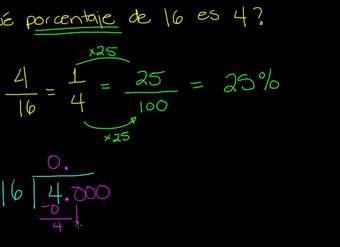 porcentaje de 16 es 4?
×25
4/16 = 1/4 = 25/100 = 25%
×25
0.
16 4.000
-0
4